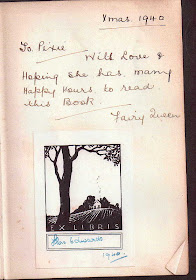 Xmas 1940
To Pixie
With Love &
Hoping she has many
Happy Hours to read
this Book.
Fairy Queen
EX LIBRIS
Edwards
1940.